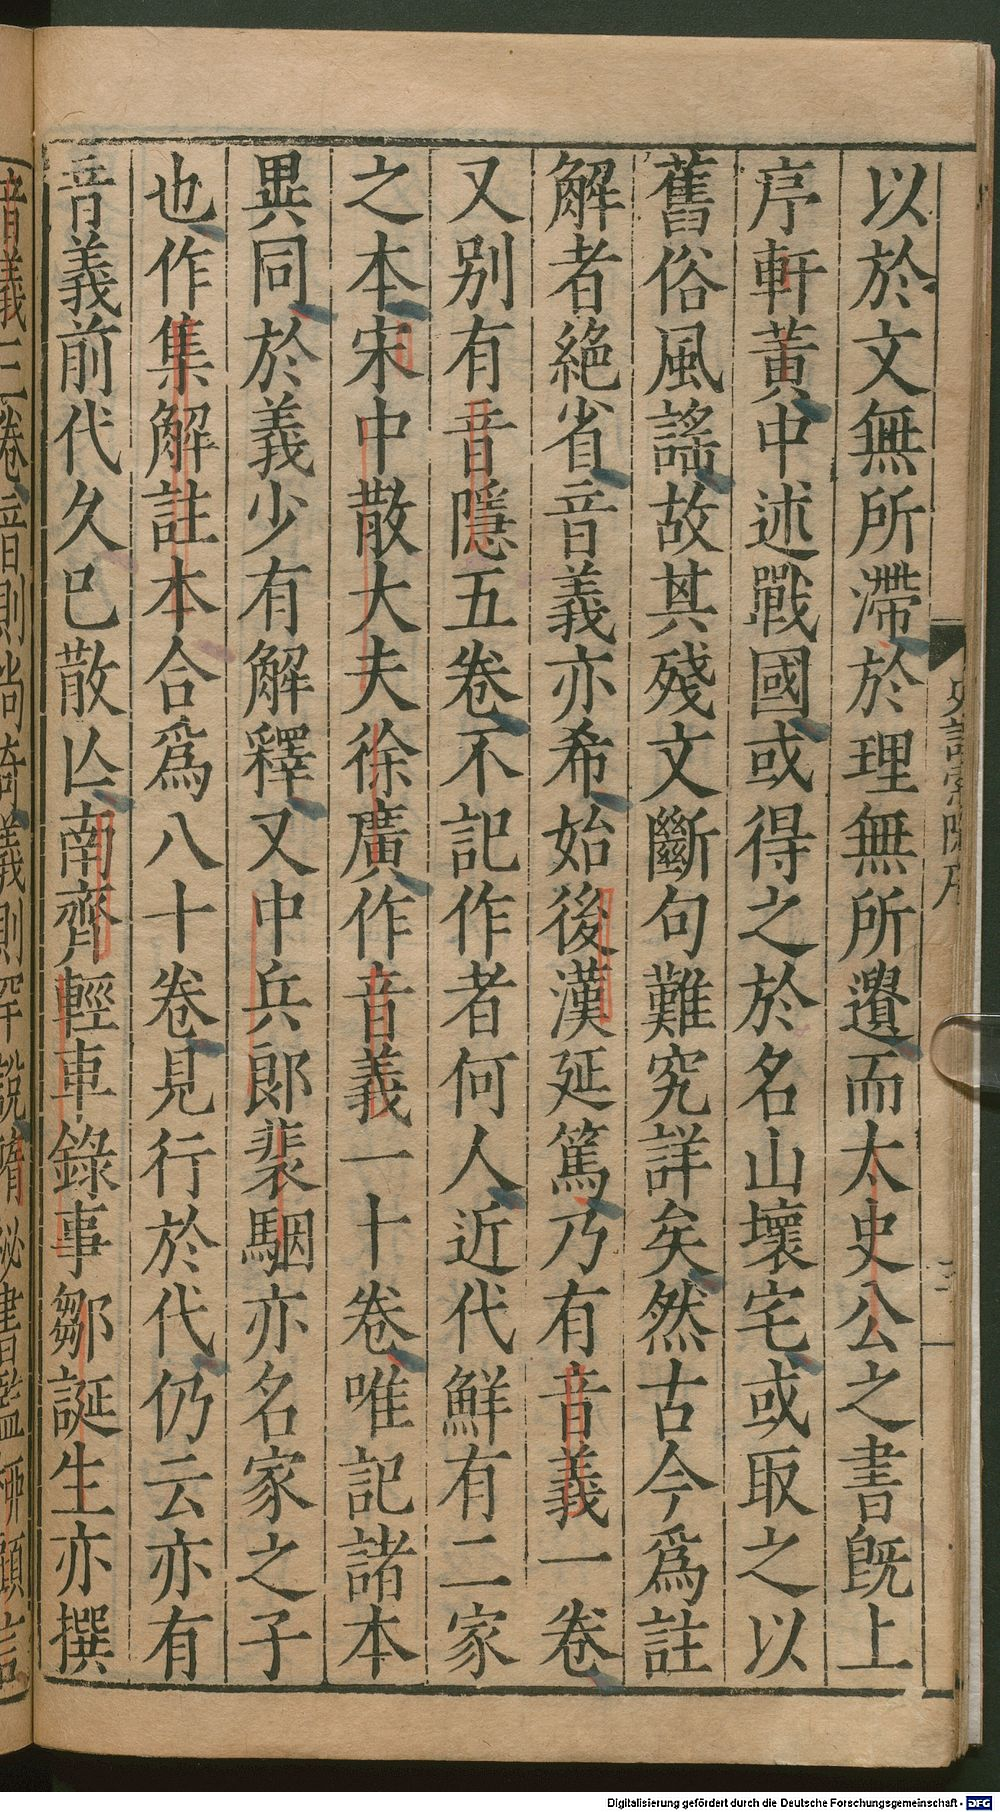 以於文無所滯於理無所遺而太史公之書既上
序軒黃中述戰國或得之於名山壞宅或取之以
舊俗風謠故其殘文斷句難究詳矣然古今爲註
解者絶省音義亦希始後漢延篤乃有音義一卷
又别有音隱五卷不記作者何人近代鮮有二家
之本宋中散大夫徐廣作音義一十卷唯記諸本
異同於義少有解釋又中兵郎裴駰亦名家之子
也作集解註本合爲八十卷見行於代仍云亦有
音義前代久已散亾南齊輕車錄事鄒誕生亦撰
音義三卷音則尚奇義則罕說隋秘書監柳顧言
Digitalisierung gefördert durch die Deutsche Forschungsgemeinschaft - DFG